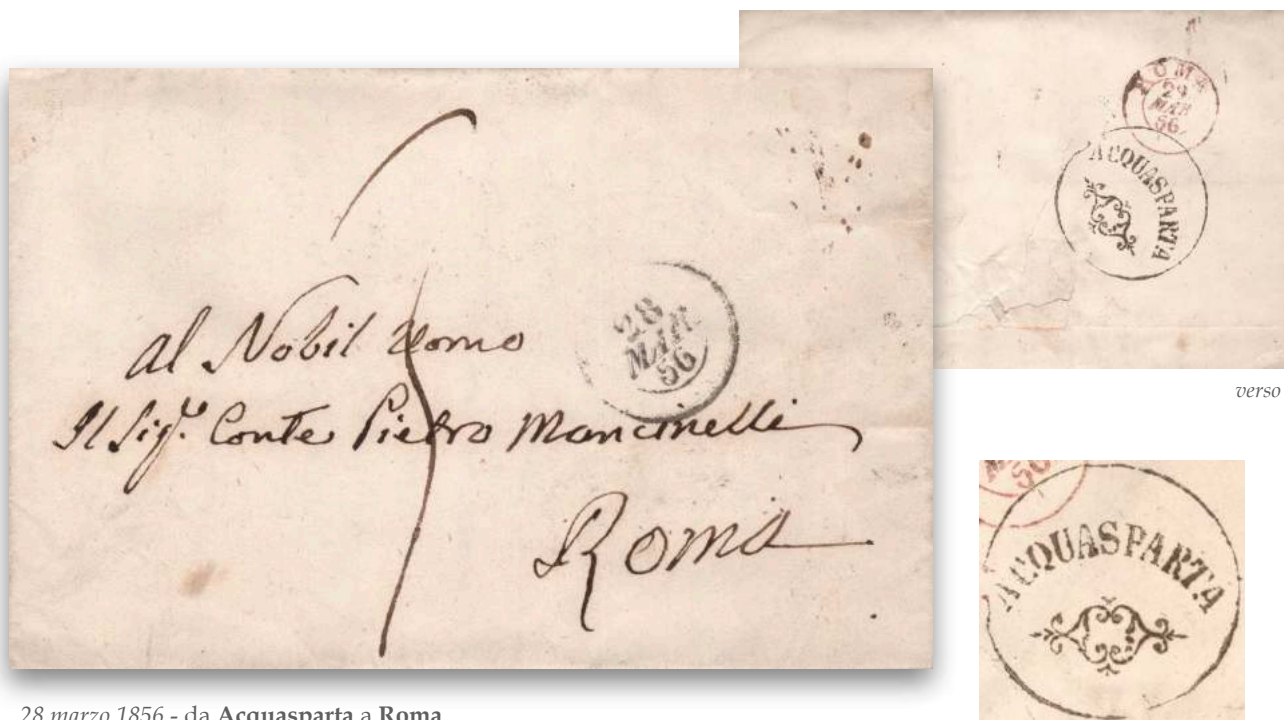 Al Nobil Uomo
Il Sigr. Conte Pietro Mancinelli
Roma
28
MAR
56
ROMA
29
MAR
56
ACQUASPARTA
verso
56
ACQUASPARTA
28 marzo 1856 - da Acquasparta a Roma